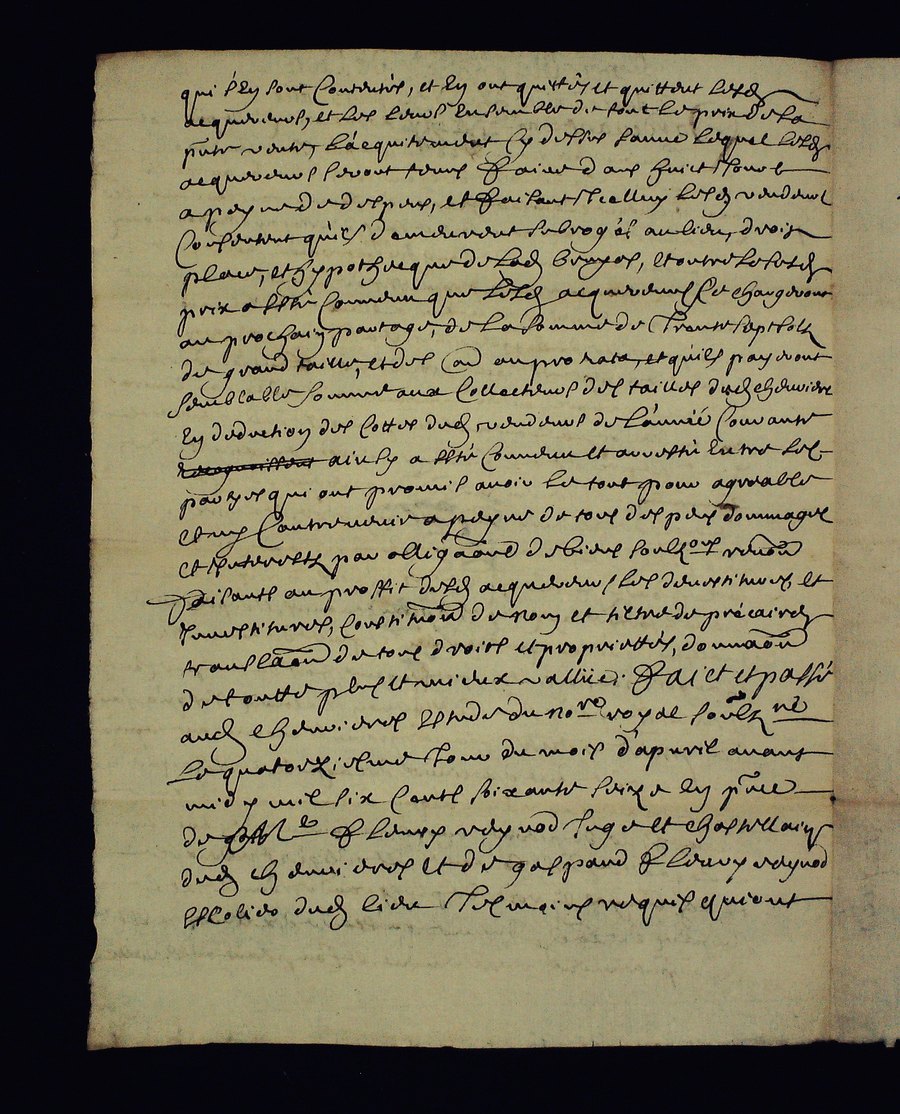 qui s'en sont contentés, et en ont quittés et quittent lesd
acquereurs, et les leurs ensemble de tout le prix de la
pnte vente, L'acquitement cy dessus sauue lequel lesd
acquereurs seront tenus faire dans huict Jours
a peyne de despens, et faisant Icelluy lesd vendeurs
Consentent qu'ils demeurent subrogés au lieu, droit
place, et hypothecque de lad , et outre le susd
prix a esté Conuenu que lesd acquereurs se chargeront
au prochain partage, de la somme de Trente sept solz
de grand taille, et des au prorata, et qu'ils payeront
semblable somme aux Collecteurs des tailles dud cheurieres
En deduction des Cottes desd vendeurs de L'année Courante
recognoissent ainsy a esté Conuenu et arresté Entre les
partyes qui ont promis auoir le tout pour agreable
et ny Contreuenir a peyne de tous despens dommages
et Interests par obligãaon de biens soubzons renõn
faisants au proffit desd acquereurs les deuestitures, et
Inuestitures, constitũon de nom et tiltre de précaire,
translãaon de tous droits et proprietés, donnãaon
de toutte plus et mieux vallüe. Faict et passé
aud cheurieres estude du nore royal soubzné
Le quatorziesme Jour du mois d'apuril auant
midy mil six Cents soixante seize En pñce
de fleury reynod Juge et chastellain
dud cheurieres et de gaspard fleury reynod
Escolier dud lieu Tesmoins requis qui ont